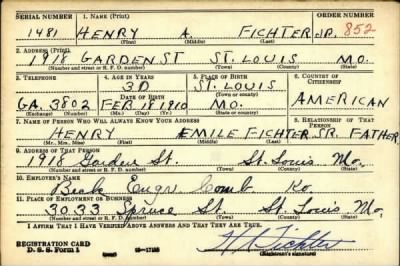 SERIAL NUMBER 1. NAME (Print) ORDER NUMBER
1481 HENRY A. FICHTER JR. 852
(First) (Middle) (Last)
2. ADDRESS (Print)
1918 GARDEN ST ST. LOUIS MO.
(Number and street or R. F. D. number) (Town) (County) (State)
3. TELEPHONE 4. AGE IN YEARS 5. PLACE OF BIRTH 6. COUNTRY OF CITIZENSHIP
30 ST. LOUIS
DATE OF BIRTH (Town or county)
GA. 3802 FEB. 18 1910 MO. AMERICAN
(Exchange) (Number) (Mo.) (Day) (Yr.) (State or country)
7. NAME OF PERSON WHO WILL ALWAYS KNOW YOUR ADDRESS 8. RELATIONSHIP OF THAT PERSON
HENRY EMILE FICHTER SR. FATHER
(Mr., Mrs., Miss) (First) (Middle) (Last)
9. ADDRESS OF THAT PERSON
1918 Garden St. St. Louis Mo.
(Number and street or R. F. D. number) (Town) (County) (State)
10. EMPLOYER'S NAME
Comb.
11. PLACE OF EMPLOYMENT OR BUSINESS
3033 Spruce St. St. Louis Mo.
(Number and street or R. F. D. number) (Town) (County) (State)
I AFFIRM THAT I HAVE VERIFIED ABOVE ANSWERS AND THAT THEY ARE TRUE.
REGISTRATION CARD
D. S. S. Form 1 H A Fichter
(Registrant's signature)